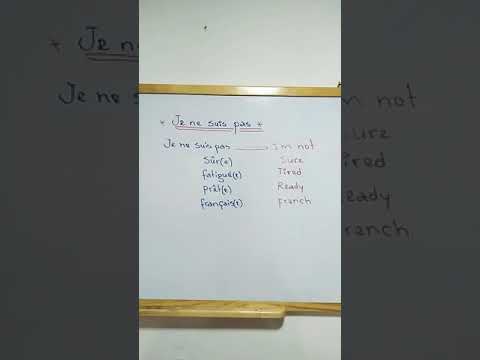 * Je ne suis pas *
Je ne suis pas → I'm not
Sûr(e) Sure
fatigué(e) Tired
Prêt(e) Ready
français(e) Franch